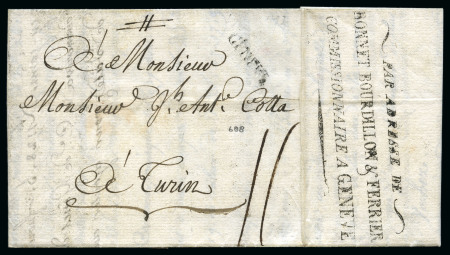 A Monsieur
Monsieur Jh. Ante. Cotta
688
A Turin
PAR ADRESSE DE
BONNET BOURDILLON & FERRIER
COMMISSIONNAIRE A GENEVE